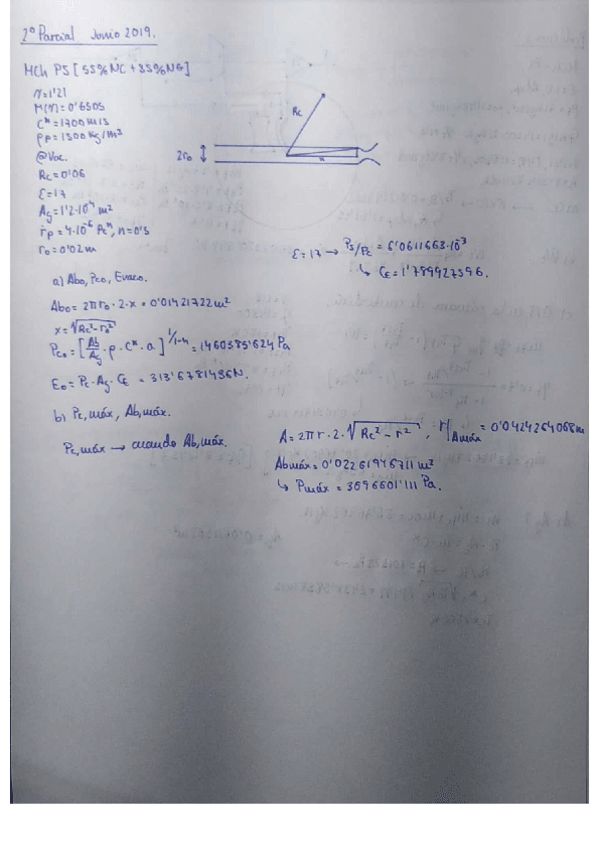 2º Parcial Junio 2019.
MCh PS [55%NC + 35%NG]
γ=1'21
Γ(γ)=0'6505
C*=1700 m/s
ρp=1500 Kg/m³
@Vac.
Rc=0'06
ε=17
Ag=1'2·10⁻⁴ m²
ṙp=4·10⁻⁶ Pcⁿ, n=0'5
r₀=0'02 m
Rc
2r₀
x
ε=17 → Ps/Pc = 6'0611663·10⁻³
↳ CE = 1'789927596.
a) Ab₀, Pc₀, Evac₀.
Ab₀ = 2πr₀·2·x = 0'01421722 m²
x = √(Rc²-r²)
Pc₀ = [Ab/Ag · ρ · C* · a]^(1/1-n) = 1460385'624 Pa
E₀ = Pc·Ag·CE = 313'6781436 N.
b) Pc,máx, Ab,máx.
Pc,máx → cuando Ab,máx.
A = 2πr·2·√(Rc² - r²), r|Amáx = 0'0424264068 m
Abmáx = 0'02261946711 m²
↳ Pmáx = 3696601'111 Pa.